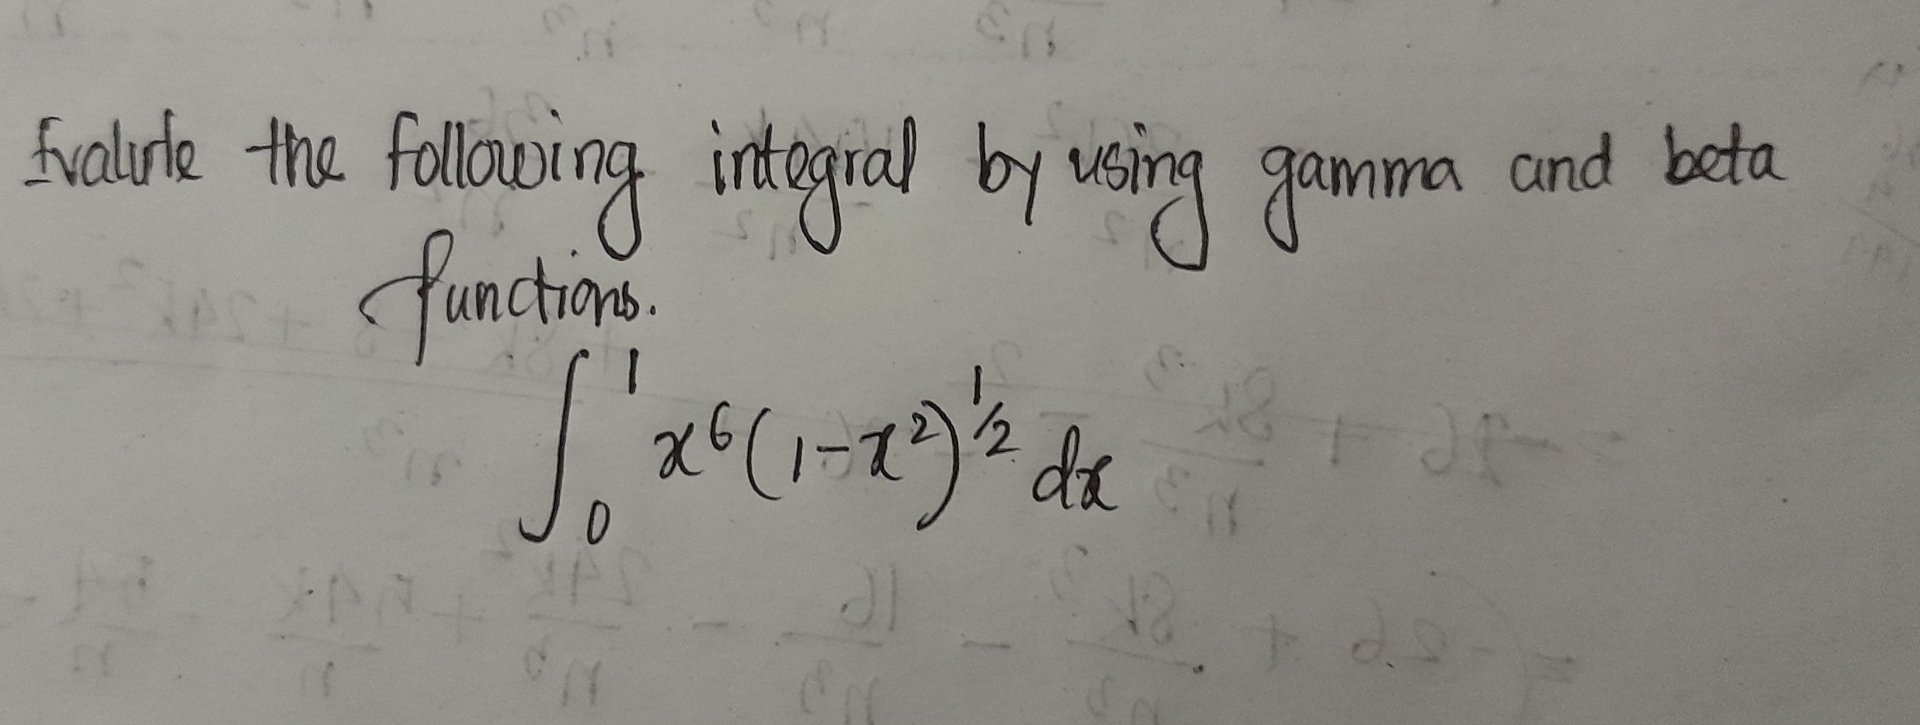 Evalute the following integral by using gamma and beta
functions.
∫₀¹ x⁶(1-x²)^{1/2} dx